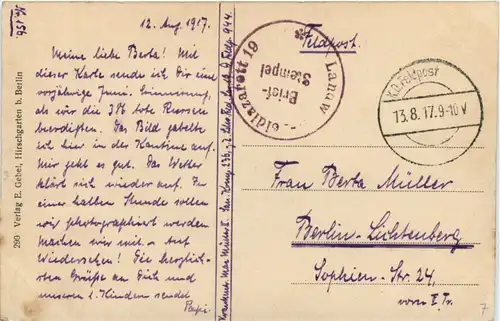 No. 156.
12. Aug. 1917.
Meine liebe Berta! Mit
dieser Karte sende ich Dir eine
vorjährige Juni-Erinnerung,
als wir die 3½ tote Russen
beerdigten. Das Bild gabelte
ich hier in der Kantine auf.
Mir geht es gut. Das Wetter
klärt sich wieder auf. In
einer halben Stunde sollen
wir photographiert werden
machen wir mit. - Auf
Wiedersehen! Die herzlich-
sten Grüße an Dich und
unseren l. Kindern sendet
Papi.
290 Verlag E. Gebel, Hirschgarten b. Berlin
Feldpost.
Landw.-Feldlazarett 19
Brief-
Stempel
K.D. Feldpost
13.8.17. 9-10 V
Frau Berta Müller
Berlin-Lichtenberg
Sophien-Str. 24,
vorn I. Tr.
7